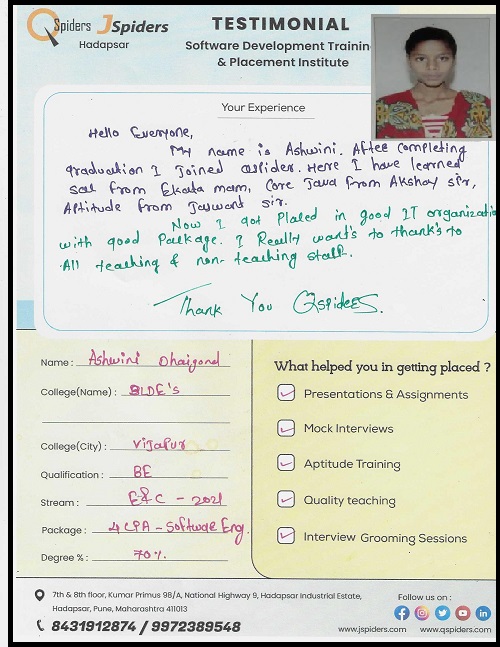 QSpiders JSpiders
Hadapsar
TESTIMONIAL
Software Development Trainin
& Placement Institute
Your Experience
Hello Everyone,
My name is Ashwini. After completing
graduation I Joined QSpider. Here I have learned
Sql from Ekata mam, Core Java from Akshay sir,
Aptitude from Jaswant sir.
Now I got Plated in good IT organizatio
with good Package. I Really want's to thank's to
All teaching & non-teaching staff.
Thank You QSpiders.
Name : Ashwini Dhaigond
College(Name) : BLDE's
College(City) : Vijapur
Qualification : BE
Stream : E&C - 2021
Package : 4 LPA - Software Eng.
Degree % : 70%
What helped you in getting placed ?
Presentations & Assignments
Mock Interviews
Aptitude Training
Quality teaching
Interview Grooming Sessions
7th & 8th floor, Kumar Primus 98/A, National Highway 9, Hadapsar Industrial Estate,
Hadapsar, Pune, Maharashtra 411013
8431912874 / 9972389548
Follow us on :
www.jspiders.com www.qspiders.com